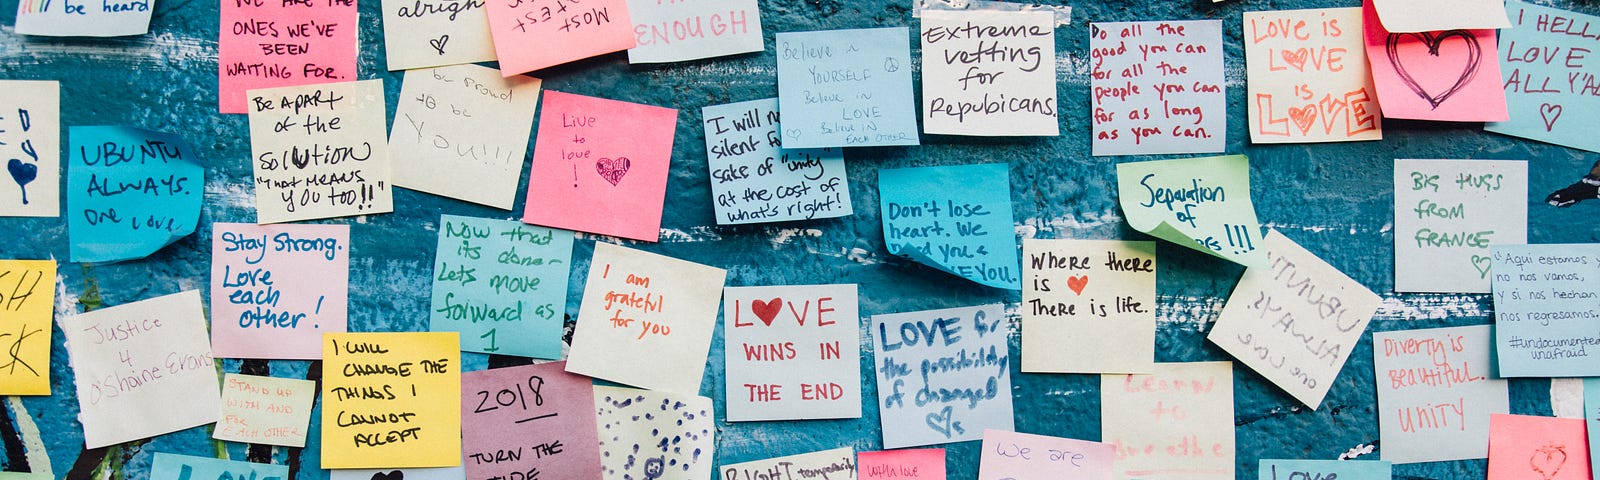 be heard
WE ARE THE
ONES WE'VE
BEEN
WAITING FOR.
alright
MOST
TEST
ENOUGH
Believe in
YOURSELF
Believe in
LOVE
Believe in
EACH OTHER
Extreme
vetting
for
Repubicans.
Do all the
good you can
for all the
people you can
for as long
as you can.
LOVE is
LOVE
is
LOVE
I HELLA
LOVE
ALL Y'ALL
UBUNTU
ALWAYS.
one love
Be A PART
of the
Solution
"THAT MEANS
you too!!"
be proud
to be
you!!!
Live
to
love
!
I will
silent for
sake of "unity"
at the cost of
what's right!
Don't lose
heart. We
need you &
LOVE YOU.
Separation
of
!!!
BIG HUGS
FROM
FRANCE
Stay Strong.
Love
each
other!
Now that
its done-
Lets move
forward as
1
I am
grateful
for you
LOVE
WINS IN
THE END
LOVE for
the possibility
of changed
Where there
is
There is life.
UBUNTU
ALWAYS.
one love
"Aqui estamos y
no nos vamos,
y si nos hechan
nos regresamos."
#undocumented
unafraid
SH
CK
Justice
4
O'Shaine Evans
STAND UP
WITH AND
FOR
EACH OTHER
I WILL
CHANGE THE
THINGS I
CANNOT
ACCEPT
2018
TURN THE
TIDE
Learn
to
Breathe
Diverty is
Beautiful.
Unity
LOVE
RIGHT temporarily
with love
we are
Love